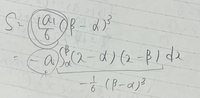 S = |a|/6 (β-α)³
= -a ∫_α^β (x-α)(x-β) dx
-1/6 (β-α)³